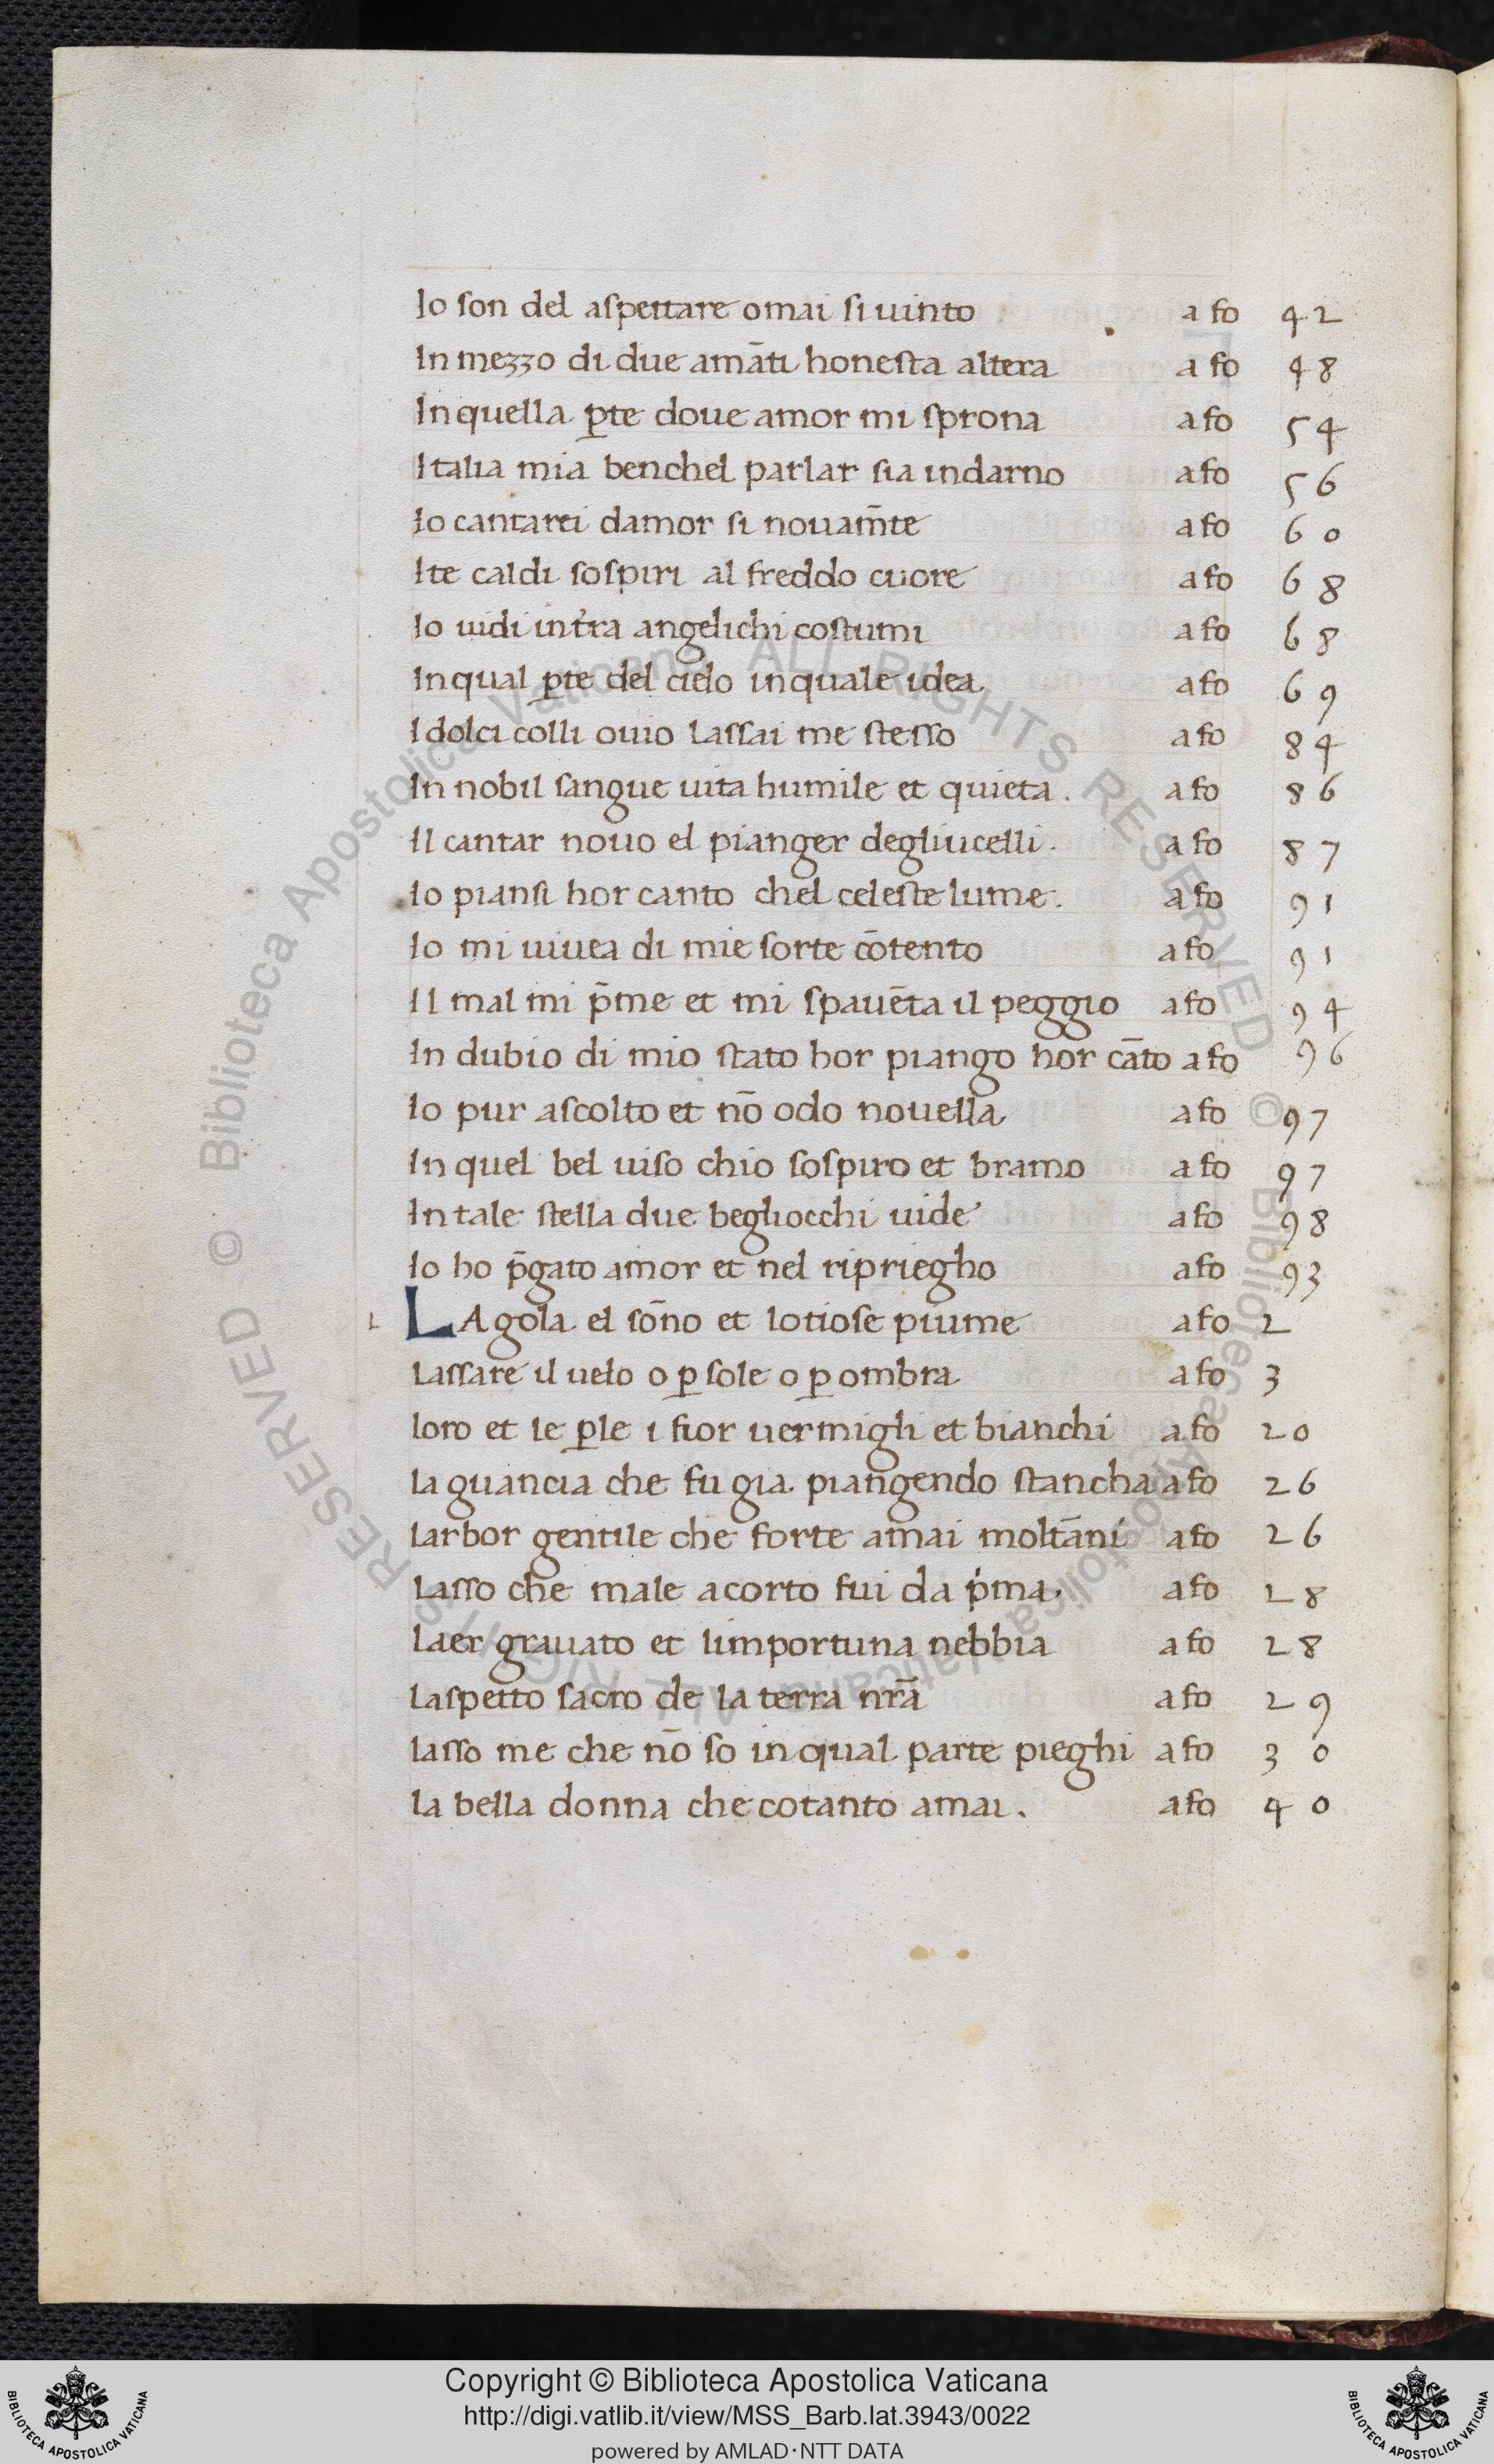 Io son del aspettare omai si uinto a fo 42
In mezzo di due amāti honesta altera a fo 48
In quella ꝑte doue amor mi sprona a fo 54
Italia mia benchel parlar sia indarno a fo 56
Io cantarei damor si nouam̄te a fo 60
Ite caldi sospiri al freddo cuore a fo 68
Io uidi in t̄ra angelichi costumi a fo 68
In qual ꝑte del cielo in quale idea a fo 69
I dolci colli ouio lassai me stesso a fo 84
In nobil sangue uita humile et quieta. a fo 86
Il cantar nouo el pianger degliucelli. a fo 87
Io piansi hor canto chel celeste lume. a fo 91
Io mi uiuea di mie sorte cōtento a fo 91
Il mal mi p̄me et mi spauēta il peggio a fo 94
In dubio di mio stato hor piango hor cāto a fo 96
Io pur ascolto et nō odo nouella a fo 97
In quel bel uiso chio sospiro et bramo a fo 97
In tale stella due begliocchi uide a fo 98
Io ho p̄gato amor et nel ripriegho a fo 93
L LA gola el sōno et lotiose piume a fo 2
Lassare il uelo o ꝑ sole o ꝑ ombra a fo 3
loro et le ꝑle i fior uermigli et bianchi a fo 20
La guancia che fu gia piangendo stancha a fo 26
Larbor gentile che forte amai moltāni a fo 26
Lasso che male acorto fui da p̍ma. a fo 28
Laer grauato et limportuna nebbia a fo 28
Laspetto sacro de la terra nr̄a a fo 29
lasso me che nō so in qual parte pieghi a fo 30
la bella donna che cotanto amai. a fo 40
© Biblioteca Apostolica Vaticana ALL RIGHTS RESERVED © Biblioteca Apostolica Vaticana ALL RIGHTS RESERVED
Copyright © Biblioteca Apostolica Vaticana
http://digi.vatlib.it/view/MSS_Barb.lat.3943/0022
powered by AMLAD·NTT DATA
BIBLIOTECA APOSTOLICA VATICANA
BIBLIOTECA APOSTOLICA VATICANA